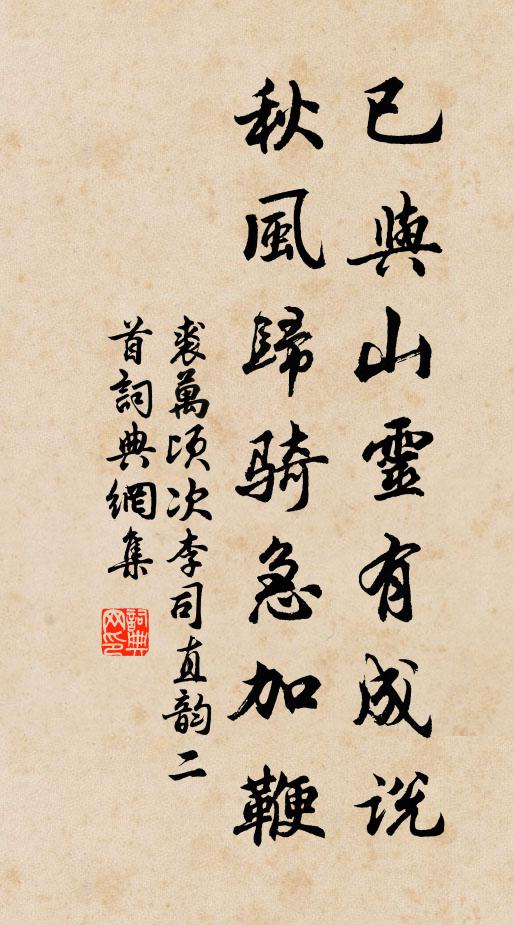 已與山靈有成説
秋風歸騎急加鞭
裘萬頃次李司直韵二
首詞典網集
詞典
网印